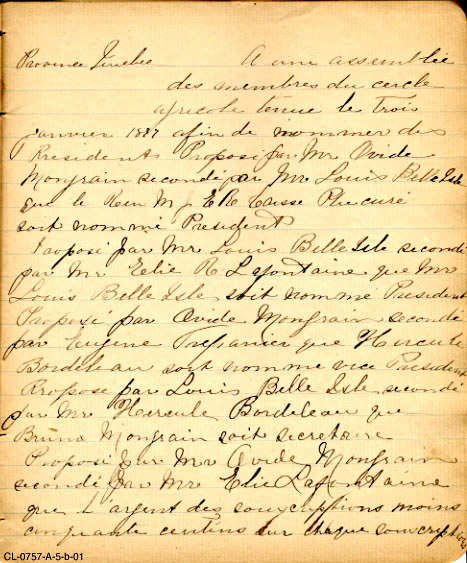 Province Quebec A une assemblée
des membres du cercle
agricole tenue le trois
janvier 1887 afin de nommer des
Presidents Proposé par Mr Ovide
Mongrain secondé par Mr Louis Belle Isle
que le Reve M J E Re Caisse Ptre Curé
soit nommé President
Proposé par Mr Louis Belle Isle secondé
par Mr Elie R Lafontaine que Mr
Louis Belle Isle soit nommé President
Proposé par Ovide Mongrain secondé
par Eugène Trepanier que Hercule
Bordeleau soit nommé vice President
Propose par Louis Belle Isle secondé
par Mr Hercule Bordeleau que
Bruno Mongrain soit secretaire
Proposé par Mr Ovide Mongrain
secondé par Mr Elie Lafontaine
que l argent des souscriptions moins
cinquante centins sur chaque souscriptions
CL-0757-A-5-b-01